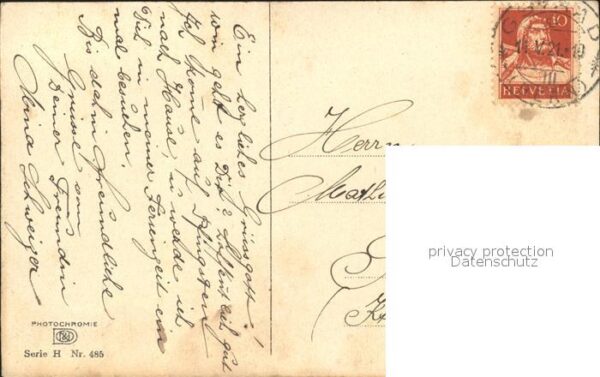 Ein herzliches Grüssgott!
wie geht es Dir? gut
Ich kome auf Pfingsten
nach Hause, u. werde ich
Dich in meiner Ferienzeit ein
mal besuchen.
Bis dahin freundliche
Grüsse von
Deiner Freundin
Mina Schweizer
PHOTOCHROMIE
Serie H Nr. 485
10
HELVETIA
11.V.21.-19
III
Herrn
privacy protection
Datenschutz